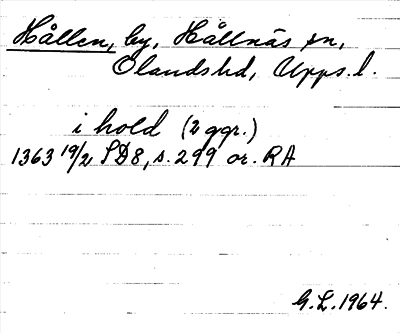 Hållen, by, Hållnäs sn,
Olands hd, Upps. l.
i hold (2 ggr.)
1363 19/2 SD8, s. 299 or. RA
G.L. 1964.